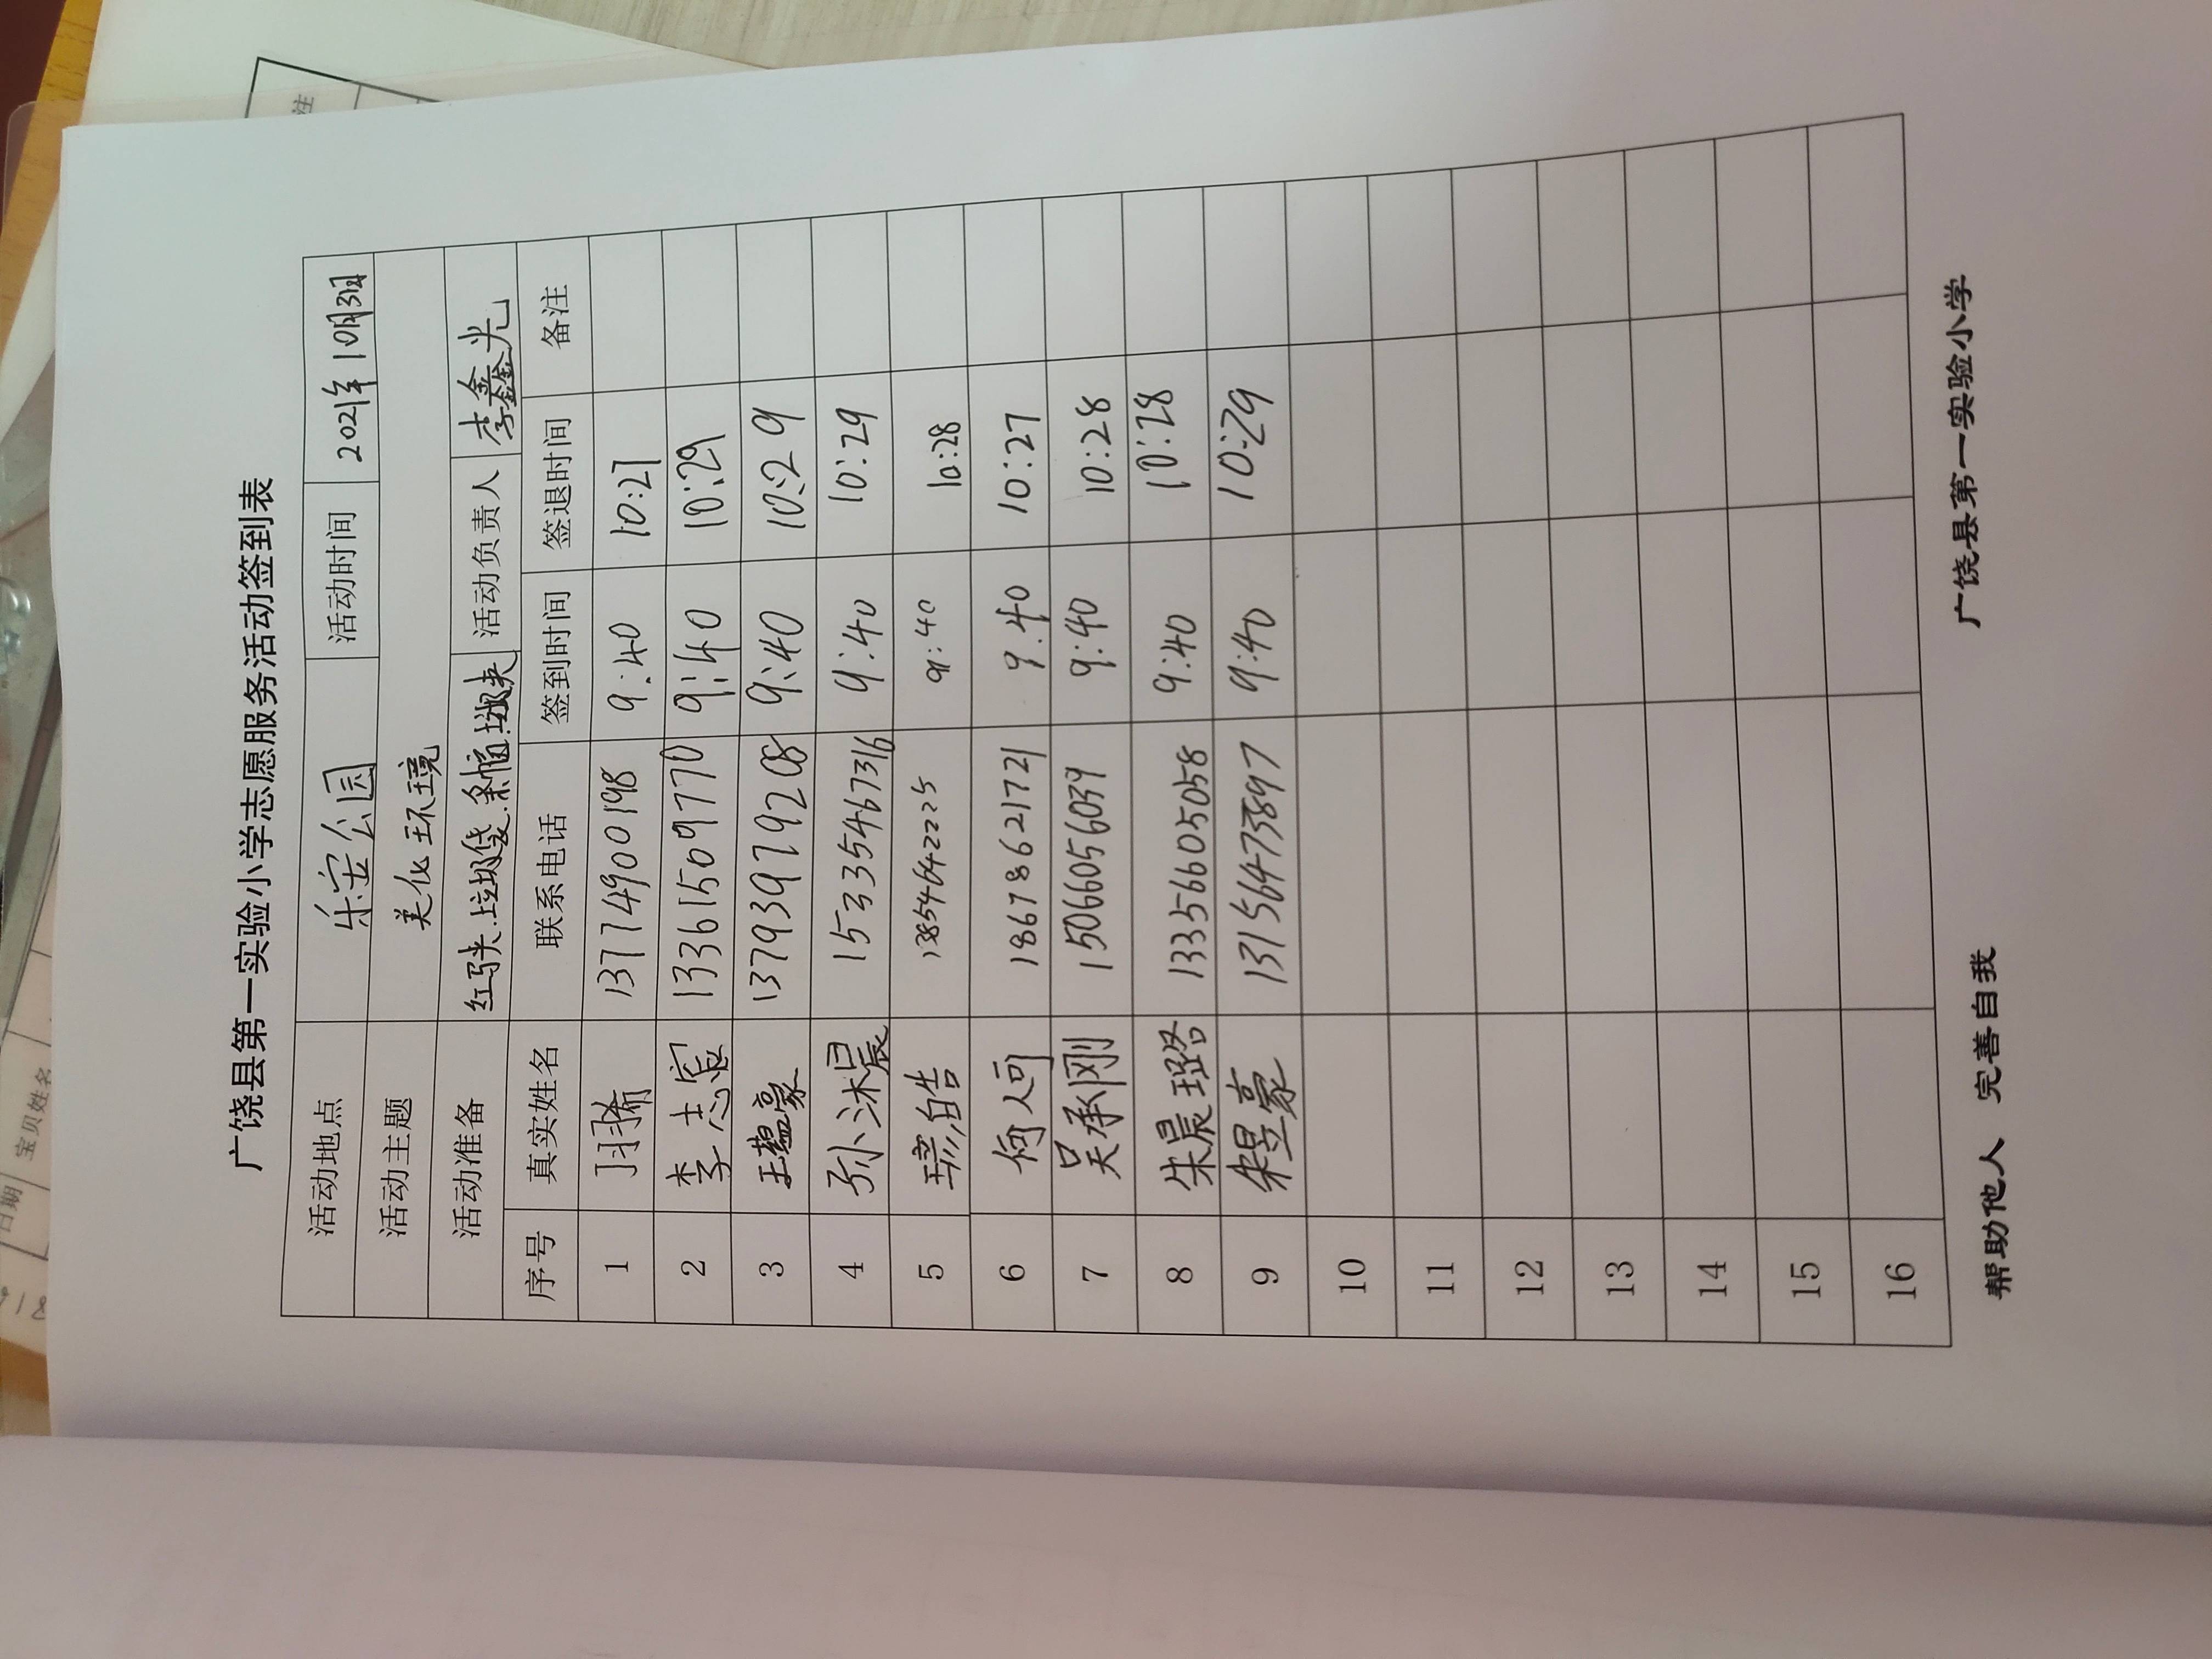 广饶县第一实验小学志愿服务活动签到表
活动地点 乐安公园 活动时间 2021年10月3日
活动主题 美化环境
活动准备 红马夹.垃圾袋.条幅.垃圾夹 活动负责人 李鑫光
序号 真实姓名 联系电话 签到时间 签退时间 备注
1 13774900198 9:40 10:27
2 李志宸 13361509770 9:40 10:29
3 王蕴豪 13793979208 9:40 10:29
4 孙沐晨 15335467316 9:40 10:29
5 13854642225 9:40 10:28
6 何人可 18678621721 9:40 10:27
7 吴承刚 15066056039 9:40 10:28
8 朱晨璐 13356605058 9:40 10:28
9 朱昱豪 13156473897 9:40 10:29
10
11
12
13
14
15
16
帮助他人 完善自我 广饶县第一实验小学
日期 宝贝姓名
注